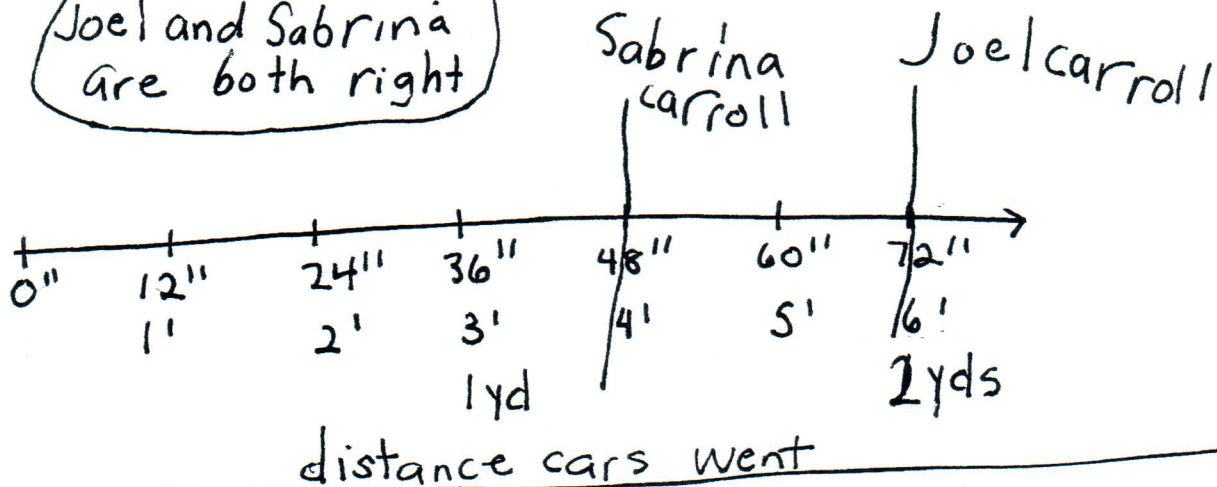 Joel and Sabrina
are both right
Sabrina
carroll
Joel carroll
0" 12" 24" 36" 48" 60" 72"
1' 2' 3' 4' 5' 6'
1yd 2yds
distance cars went